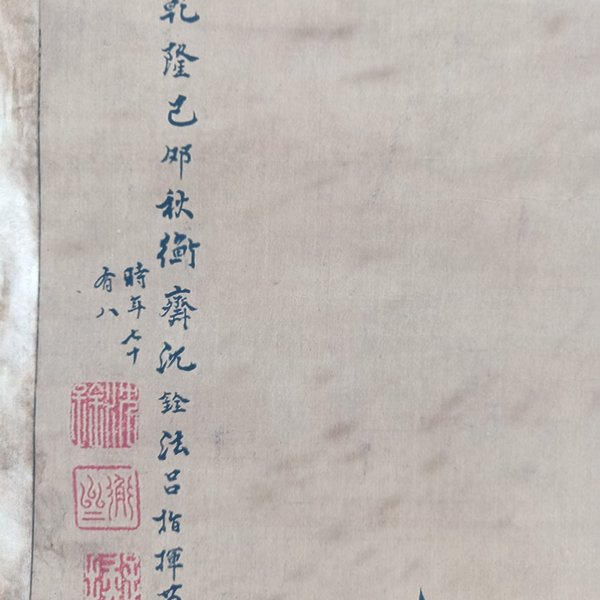 乾隆己卯秋衡齋沈銓法呂指揮
時年七十
有八